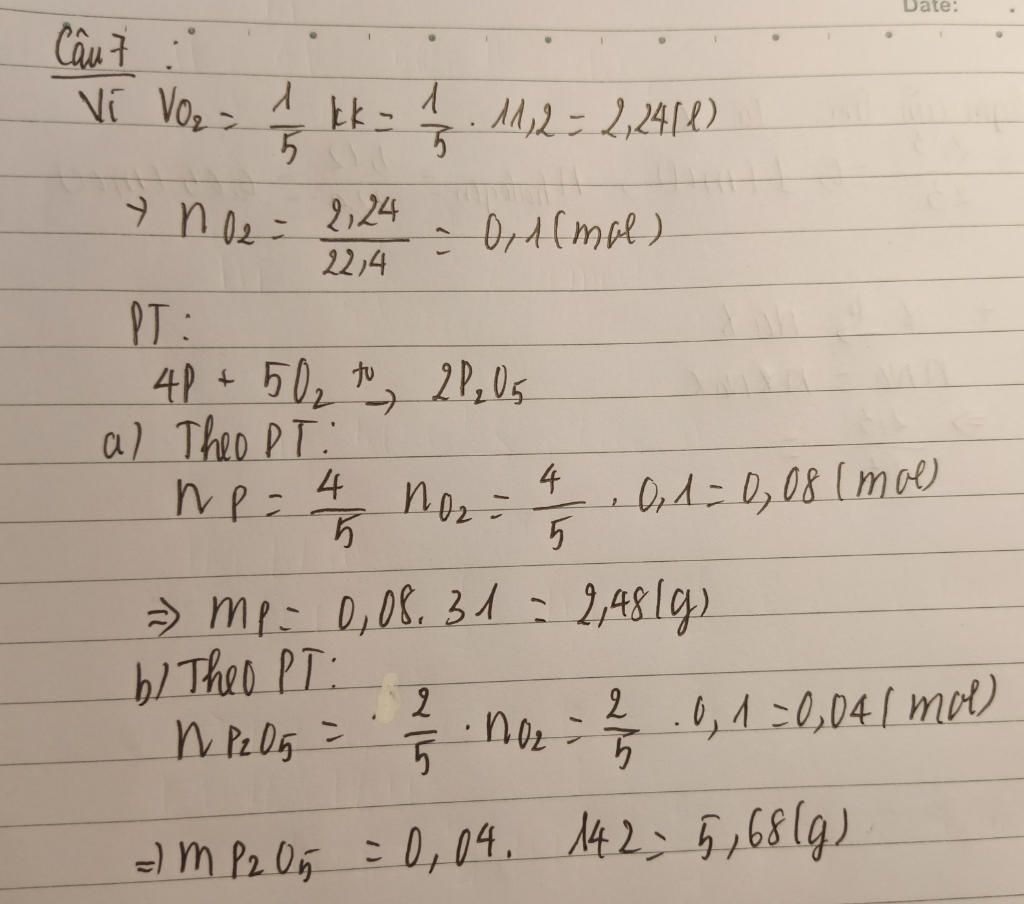 Date:
Câu 7 :
Vì VO₂ = 1/5 kk = 1/5 . 11,2 = 2,24(l)
→ nO₂ = 2,24/22,4 = 0,1(mol)
PT:
4P + 5O₂ t⁰→ 2P₂O₅
a) Theo PT:
nP = 4/5 nO₂ = 4/5 . 0,1 = 0,08 (mol)
⇒ mP = 0,08. 31 = 2,48(g)
b) Theo PT:
nP₂O₅ = 2/5 . nO₂ = 2/5 . 0,1 = 0,04( mol)
⇒ mP₂O₅ = 0,04. 142 = 5,68(g)